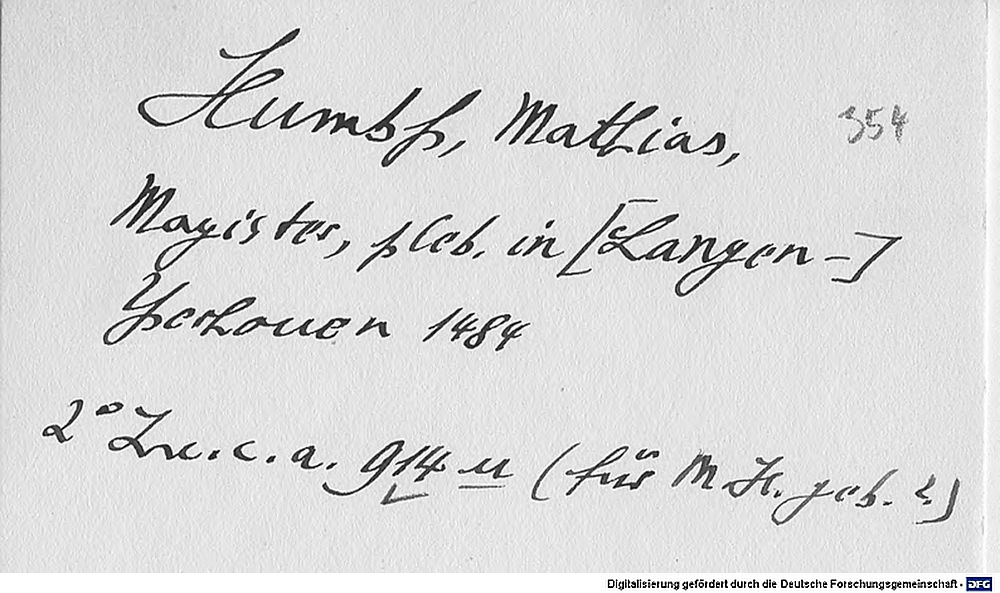 Humbß, Mathias,
354
Magister, pleb. in [Langen-]
Yserhouen 1484
2° Inc. c. a. 914 u (für M. H. geb.?)
Digitalisierung gefördert durch die Deutsche Forschungsgemeinschaft - DFG